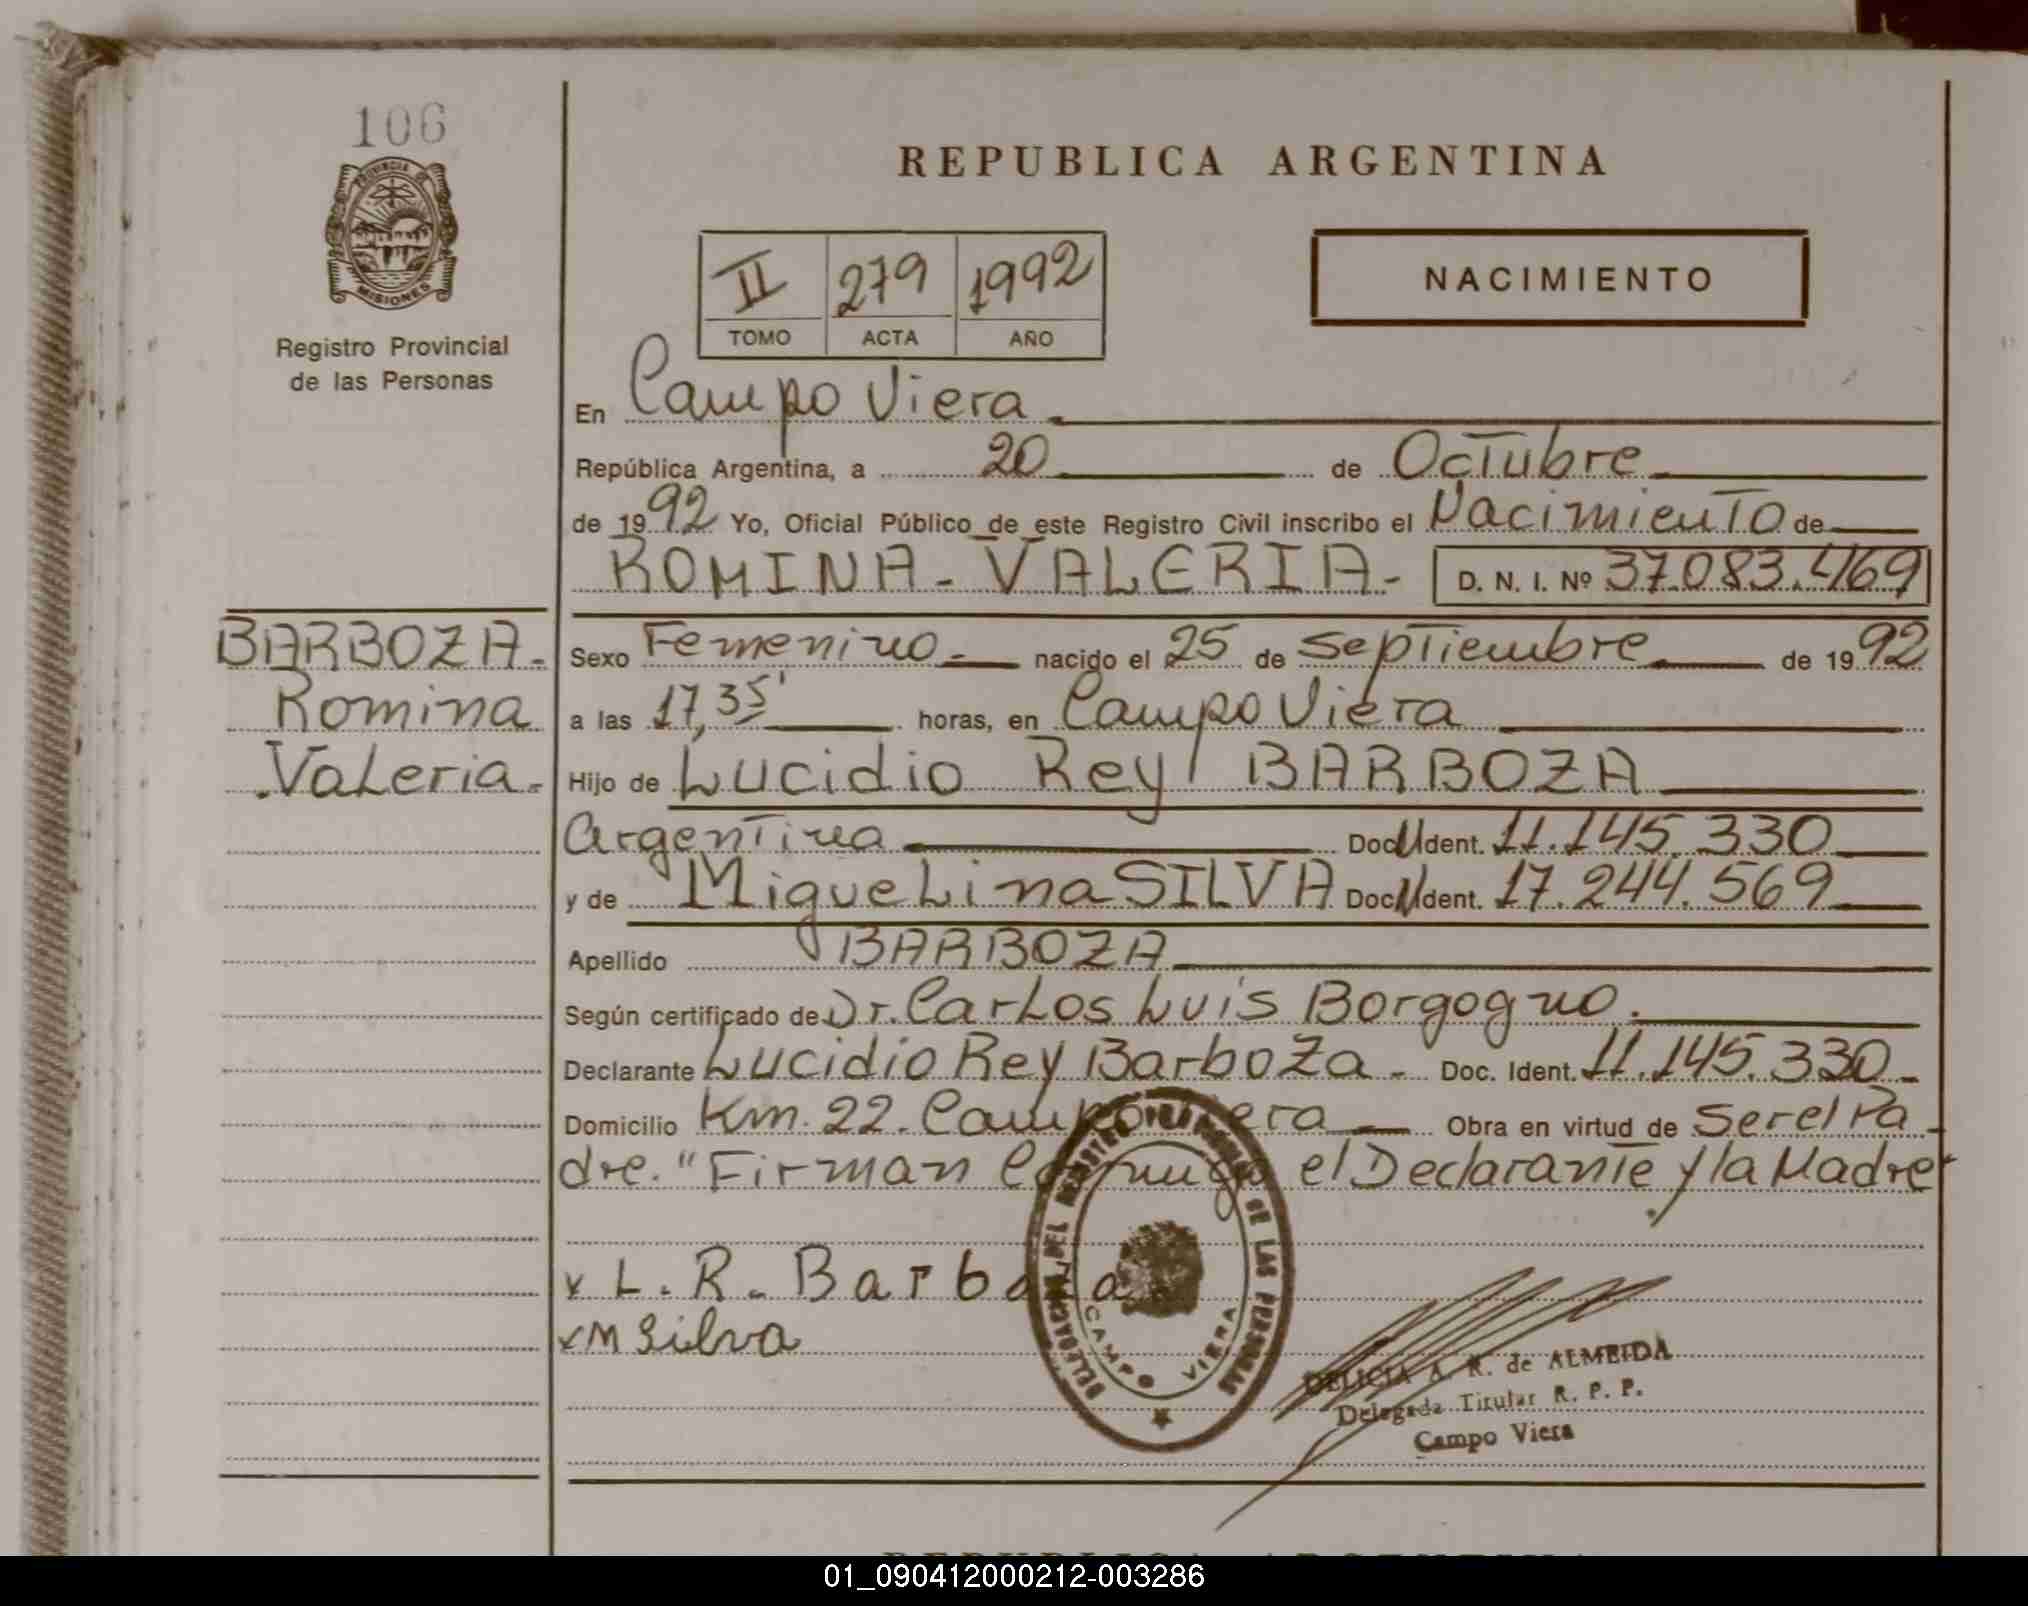 106
PROVINCIA DE
MISIONES
Registro Provincial
de las Personas
REPUBLICA ARGENTINA
II 279 1992
TOMO ACTA AÑO
NACIMIENTO
En Campo Viera
República Argentina, a 20 de Octubre
de 1992 Yo, Oficial Público de este Registro Civil inscribo el Nacimiento de
ROMINA - VALERIA - D. N. I. Nº 37.083.469
BARBOZA.
Romina
Valeria.
Sexo Femenino. nacido el 25 de Septiembre de 1992
a las 17,35' horas, en Campo Viera
Hijo de Lucidio Rey BARBOZA
Argentina Doc. Ident. 11.145.330
y de Miguelina SILVA Doc. Ident. 17.244.569
Apellido BARBOZA
Según certificado de Dr. Carlos Luis Borgogno.
Declarante Lucidio Rey Barboza - Doc. Ident. 11.145.330 -
Domicilio Km. 22. Campo Viera Obra en virtud de Ser el Pa-
dre. "Firman Conmigo el Declarante y la Madre
x L. R. Barboza
x M Silva
DELEGACION DEL REGISTRO PROVINCIAL DE LAS PERSONAS
CAMPO VIERA
DELICIA A. R. de ALMEIDA
Delegada Titular R. P. P.
Campo Viera
REPUBLICA ARGENTINA
01_090412000212-003286